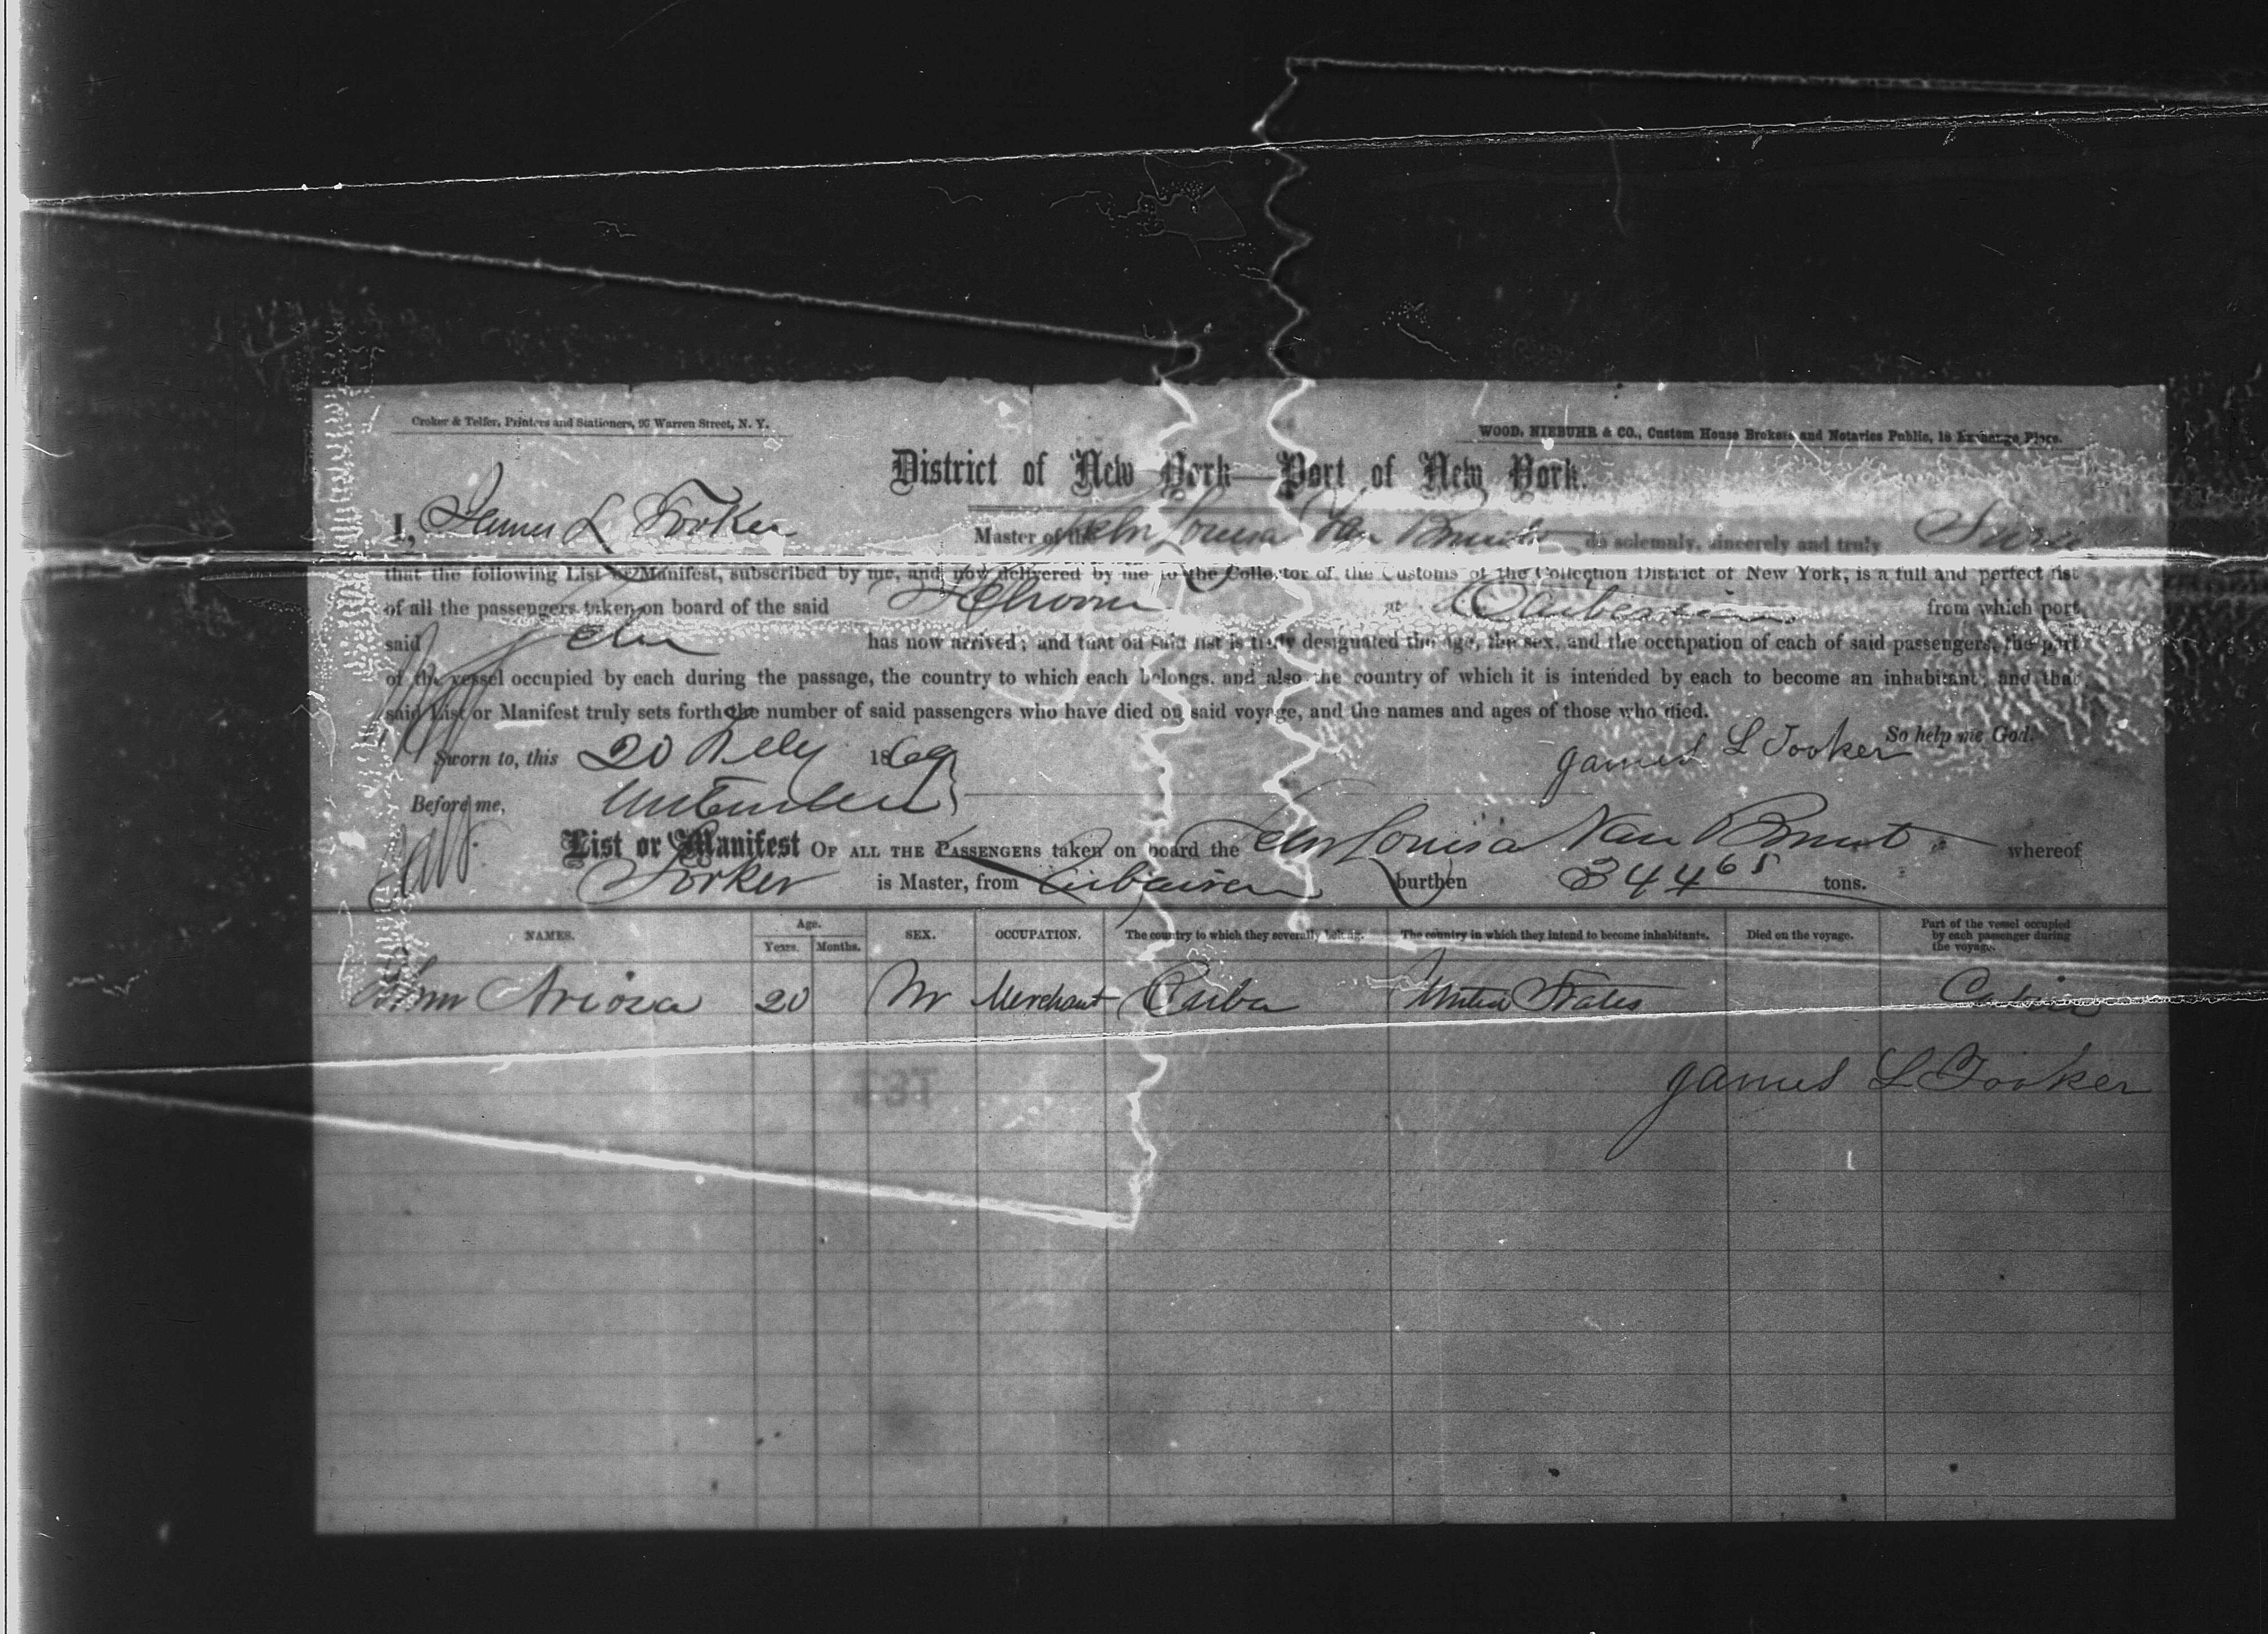 Croker & Telfer, Printers and Stationers, 90 Warren Street, N. Y.
WOOD, NIEBUHR & CO., Custom House Brokers and Notaries Public, 18 Exchange Place.
District of New York—Port of New York.
I, James L Tooker Master of the Schr Louisa Van Brunt do solemnly, sincerely and truly Swear
that the following List or Manifest, subscribed by me, and now delivered by me to the Collector of the Customs of the Collection District of New York, is a full and perfect list
of all the passengers taken on board of the said Schooner at Caibarien from which port
said Schr has now arrived; and that on said list is truly designated the age, the sex, and the occupation of each of said passengers, the part
of the vessel occupied by each during the passage, the country to which each belongs, and also the country of which it is intended by each to become an inhabitant; and that
said List or Manifest truly sets forth the number of said passengers who have died on said voyage, and the names and ages of those who died.
So help me God.
Sworn to, this 20 1869 James L Tooker
Before me,
List or Manifest OF ALL THE PASSENGERS taken on board the Schr Louisa Van Brunt whereof
Tooker is Master, from Caibarien burthen 344 65 tons.
NAMES. Age. Years. Months. SEX. OCCUPATION. The country to which they severally belong. The country in which they intend to become inhabitants. Died on the voyage. Part of the vessel occupied by each passenger during the voyage.
Ariosa 20 M Merchant Cuba United States Cabin
James L Tooker